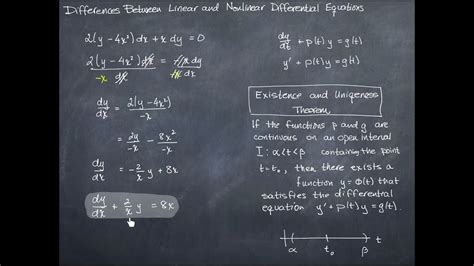 Differences Between Linear and Nonlinear Differential Equations
2(y - 4x²)dx + x dy = 0
2(y - 4x²)dx = -x dy
-x dx -x dx
dy/dx = 2(y - 4x²)/-x
= 2y/-x - 8x²/-x
dy/dx = -2/x y + 8x
dy/dx + 2/x y = 8x
dy/dt + p(t)y = g(t)
y' + p(t)y = g(t)
Existence and Uniqueness
Theorem
If the functions p and g are
continuous on an open interval
I: α<t<β containing the point
t=t₀, then there exists a
function y=Φ(t) that
satisfies the differential
equation y' + p(t)y = g(t).
α t₀ β t